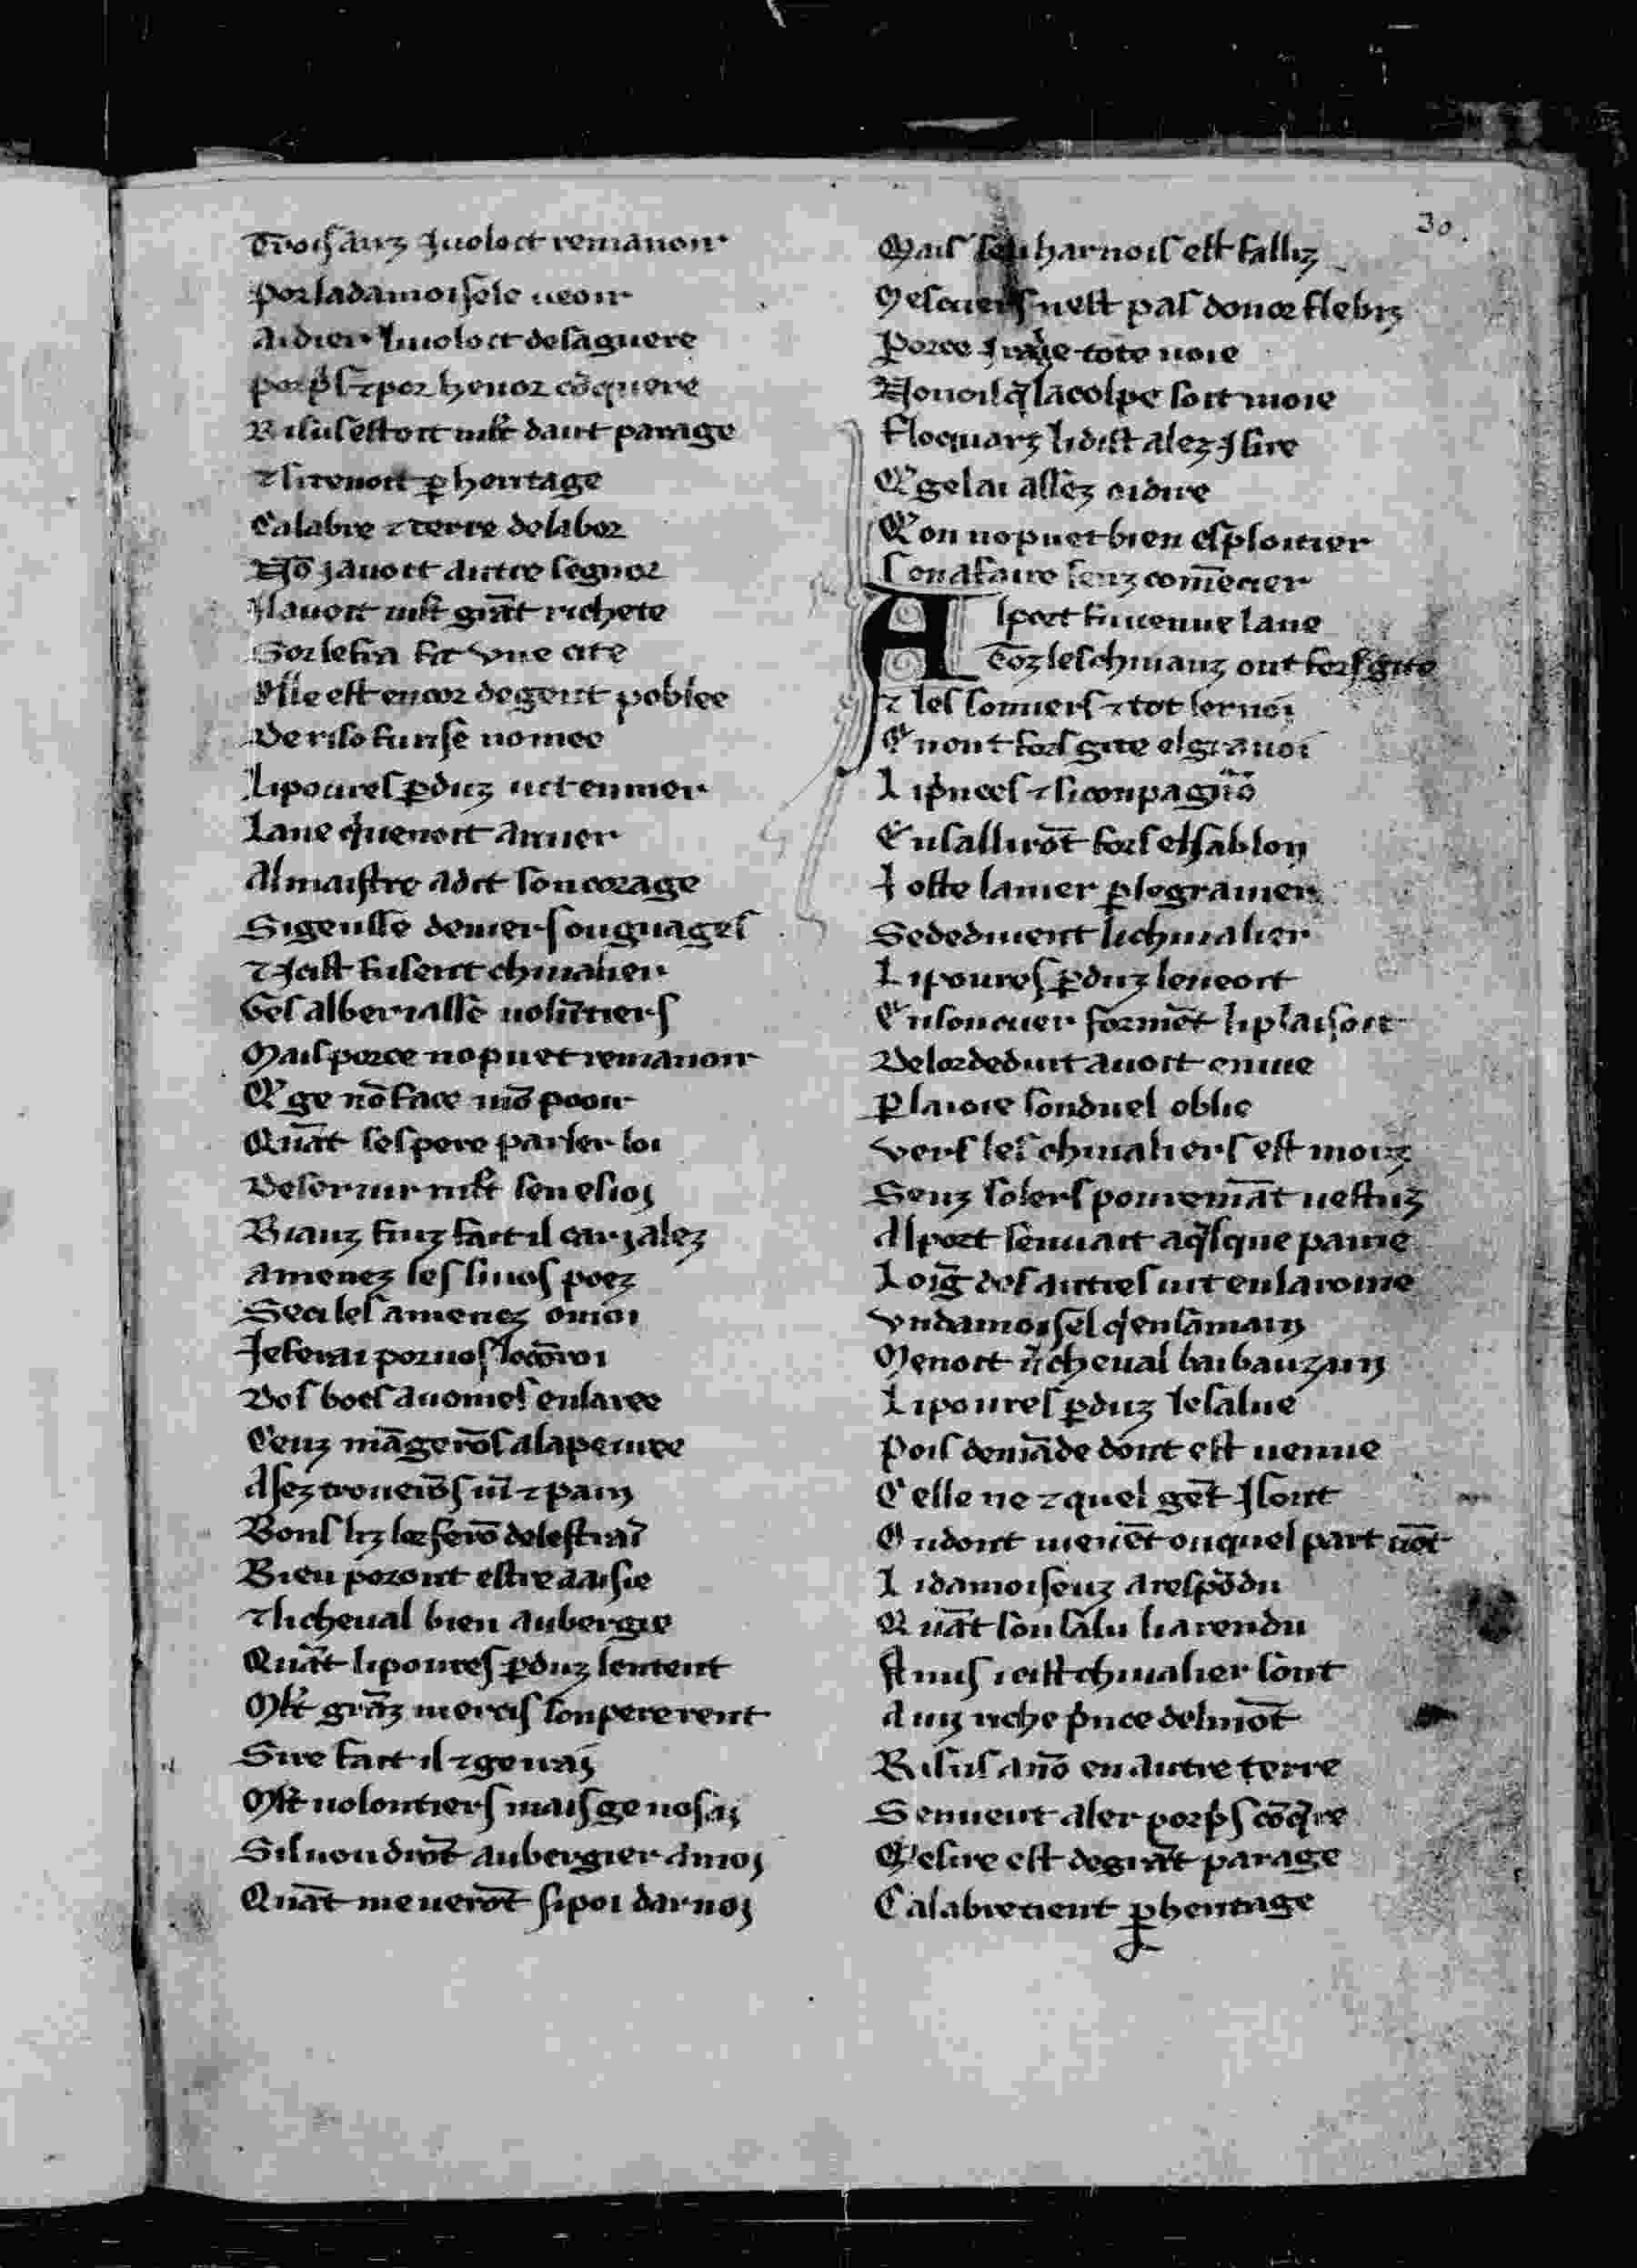 Trois anz i uoloit remanoir
por la damoisele ueoir
Aidier li uoloit de sa guere
por p̄s ⁊ por henor cōquere
Risus estoit mlt̄ daut parage
⁊ si tenoit ꝑ heritage
Calabre ⁊ terre de labor
Nō i auoit autre segnor
Il auoit mlt̄ grāt richete
Sor le fra fit vne cite
Elle est encor de gent poblee
De riso fu rise nomee
Li poures ꝑduz uit en mer
La ne q̍ uenoit ariuer
Al maistre a dit son corage
Si geusse deniers ou guages
⁊ icist fusent chiualier
Ges alberiasse uolūtiers
Mais por ce no puet remanoir
Q̄ ge nō face mō pooir
Quāt ses pere parler loi
De ferir mlt̄ sen esioi
Biauz fiuz fait il car i alez
Amenez les si uos poez
Se ci les amenez o moi
Je ferai por uos lo cōroi
Dos boes auomes en la ree
Cenz māgerōs a la peiuree
Asez trouerōs uī ⁊ pain
Bons liz lor ferō de lestraī
Bien poront estre aaisie
⁊ li cheual bien aubergie
Quāt li poures ꝑduz lentent
Mlt̄ grāz mercis son pere rent
Sire fait il ⁊ ge irai
Mlt̄ uolontiers mais ge no sai
Sil uoudrōt aubergier a moi
Quāt me uerōt si poi darnoi
30.
Mais son harnois est falliz
Mes cuers nest pas donce flebiz
Por ce i irage tote uoie
No uoil q̄ la colpe soit moie
Floquarz li dist alez i sire
Q̄ ge lai assez oi dire
Q̄ on no puet bien esploitier
Son afaire senz comēcier
Al port fu uenue la ne
Toz les chiuauz ont fors gite
⁊ les somiers ⁊ tot lernoi
En ont fors gite el grauoi
Li p̍nces ⁊ si conpagnō
En sallirōt fors el sablon
Joste la mer ꝑ le grauier
Se deduient li chiualier
Li poures ꝑduz le ueoit
En son cuer formēt li plaisoit
De lor deduit auoit enuie
ꝑ la ioie son duel oblie
Vers les chiualiers est mouz
Senz solers pouremāt uestuz
Al port sen uait a q̄lque paine
Loig des autres uit en laroine
Vn damoisel q̍ en sa main
Menoit ū cheual bai bauzain
Li poures ꝑduz le salue
Pois demāde dont est uenue
Celle ne ⁊ quel gēt i sont
Ou dont uienēt ou quel part uōt
Li damoiseuz a respōdu
Quāt son salu li a rendu
Amis icist chiualier sont
A un riche p̍nce del mōt
Risus a nō en autre terre
Sen uieut aler por p̄s cōq̄re
Mesire est de grāt parage
Calabre tient ꝑ heritage